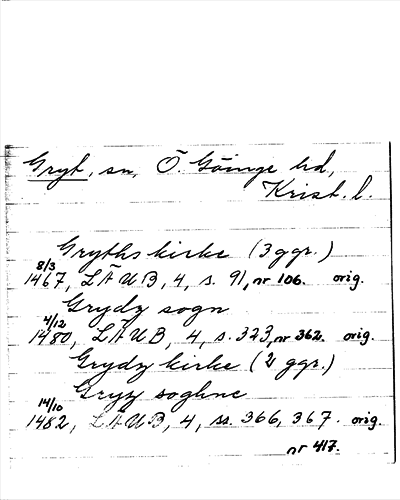 Gryt, sn, Ö. Göinge hd,
Krist. l.
Gryths kirke (3 ggr.)
8/3
1467, LÄUB, 4, s. 91, nr 106. orig.
Grydz sogn
4/12
1480, LÄUB, 4, s. 323, nr 362. orig.
Grydz kirke (2 ggr.)
Gryz soghne
14/10
1482, LÄUB, 4, ss. 366, 367. orig.
nr 417.